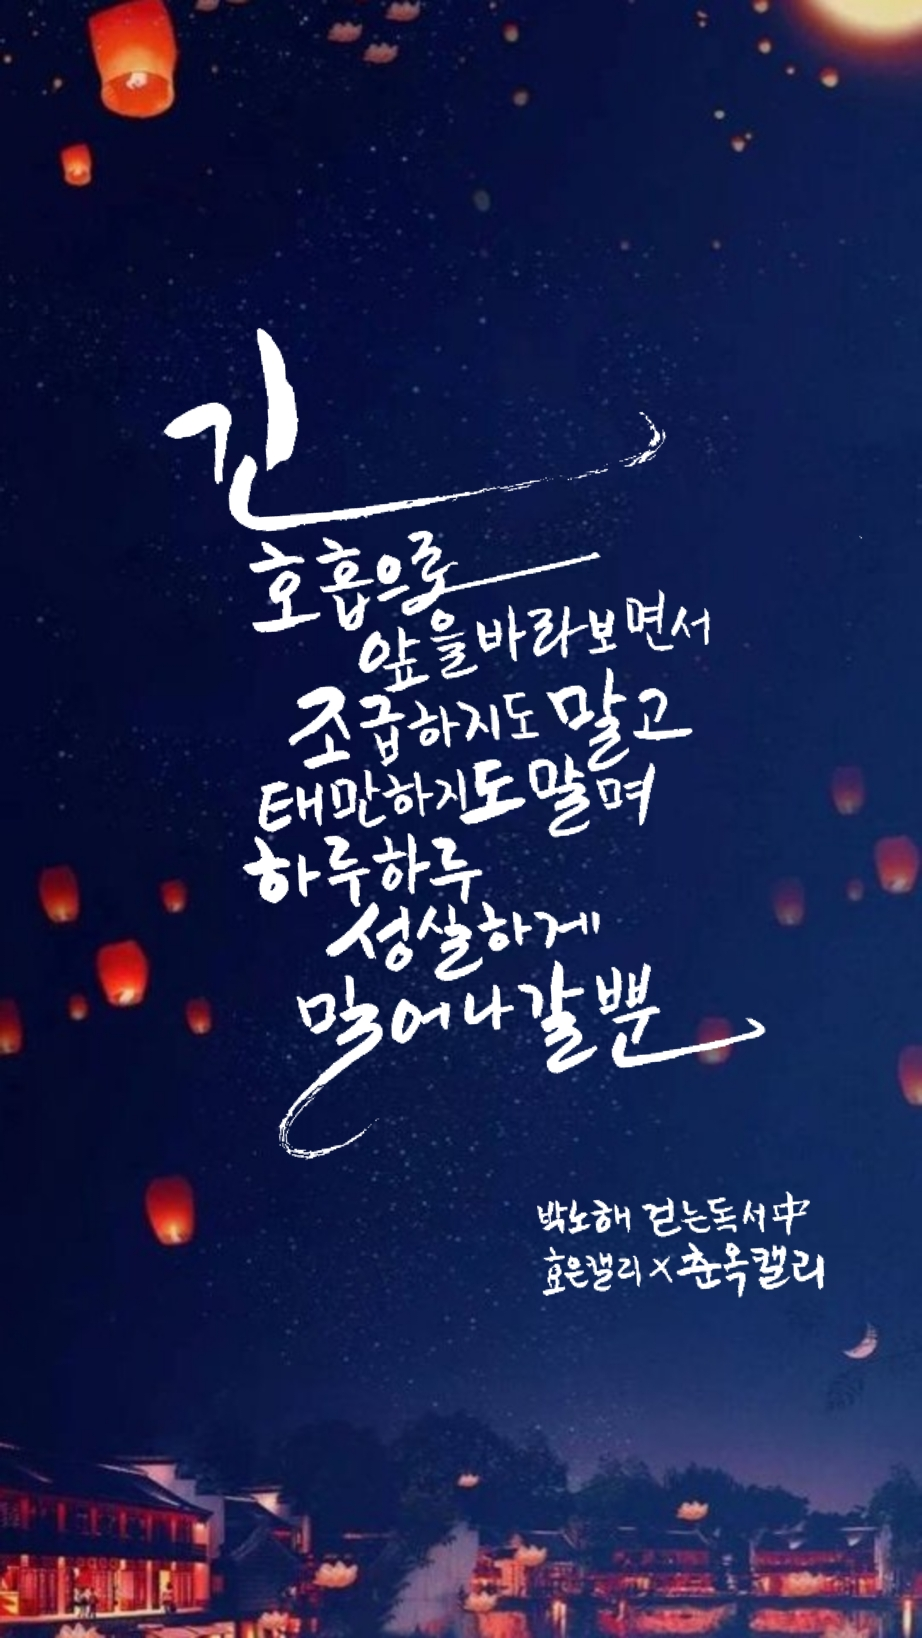 긴
호흡으로
앞을 바라보면서
조급하지도 말고
태만하지도 말며
하루하루
성실하게
밀어나갈 뿐
박노해 걷는독서 中
효은캘리 × 춘옥캘리